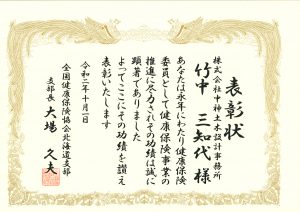 表彰状
株式会社中神土木設計事務所
竹中 三知代 様
あなたは永年にわたり健康保険
委員として健康保険事業の
推進に尽力されその功績は誠に
顕著でありました
よってここにその功績を讃え
表彰いたします
令和二年十月一日
全国健康保険協会北海道支部
支部長 大場 久夫